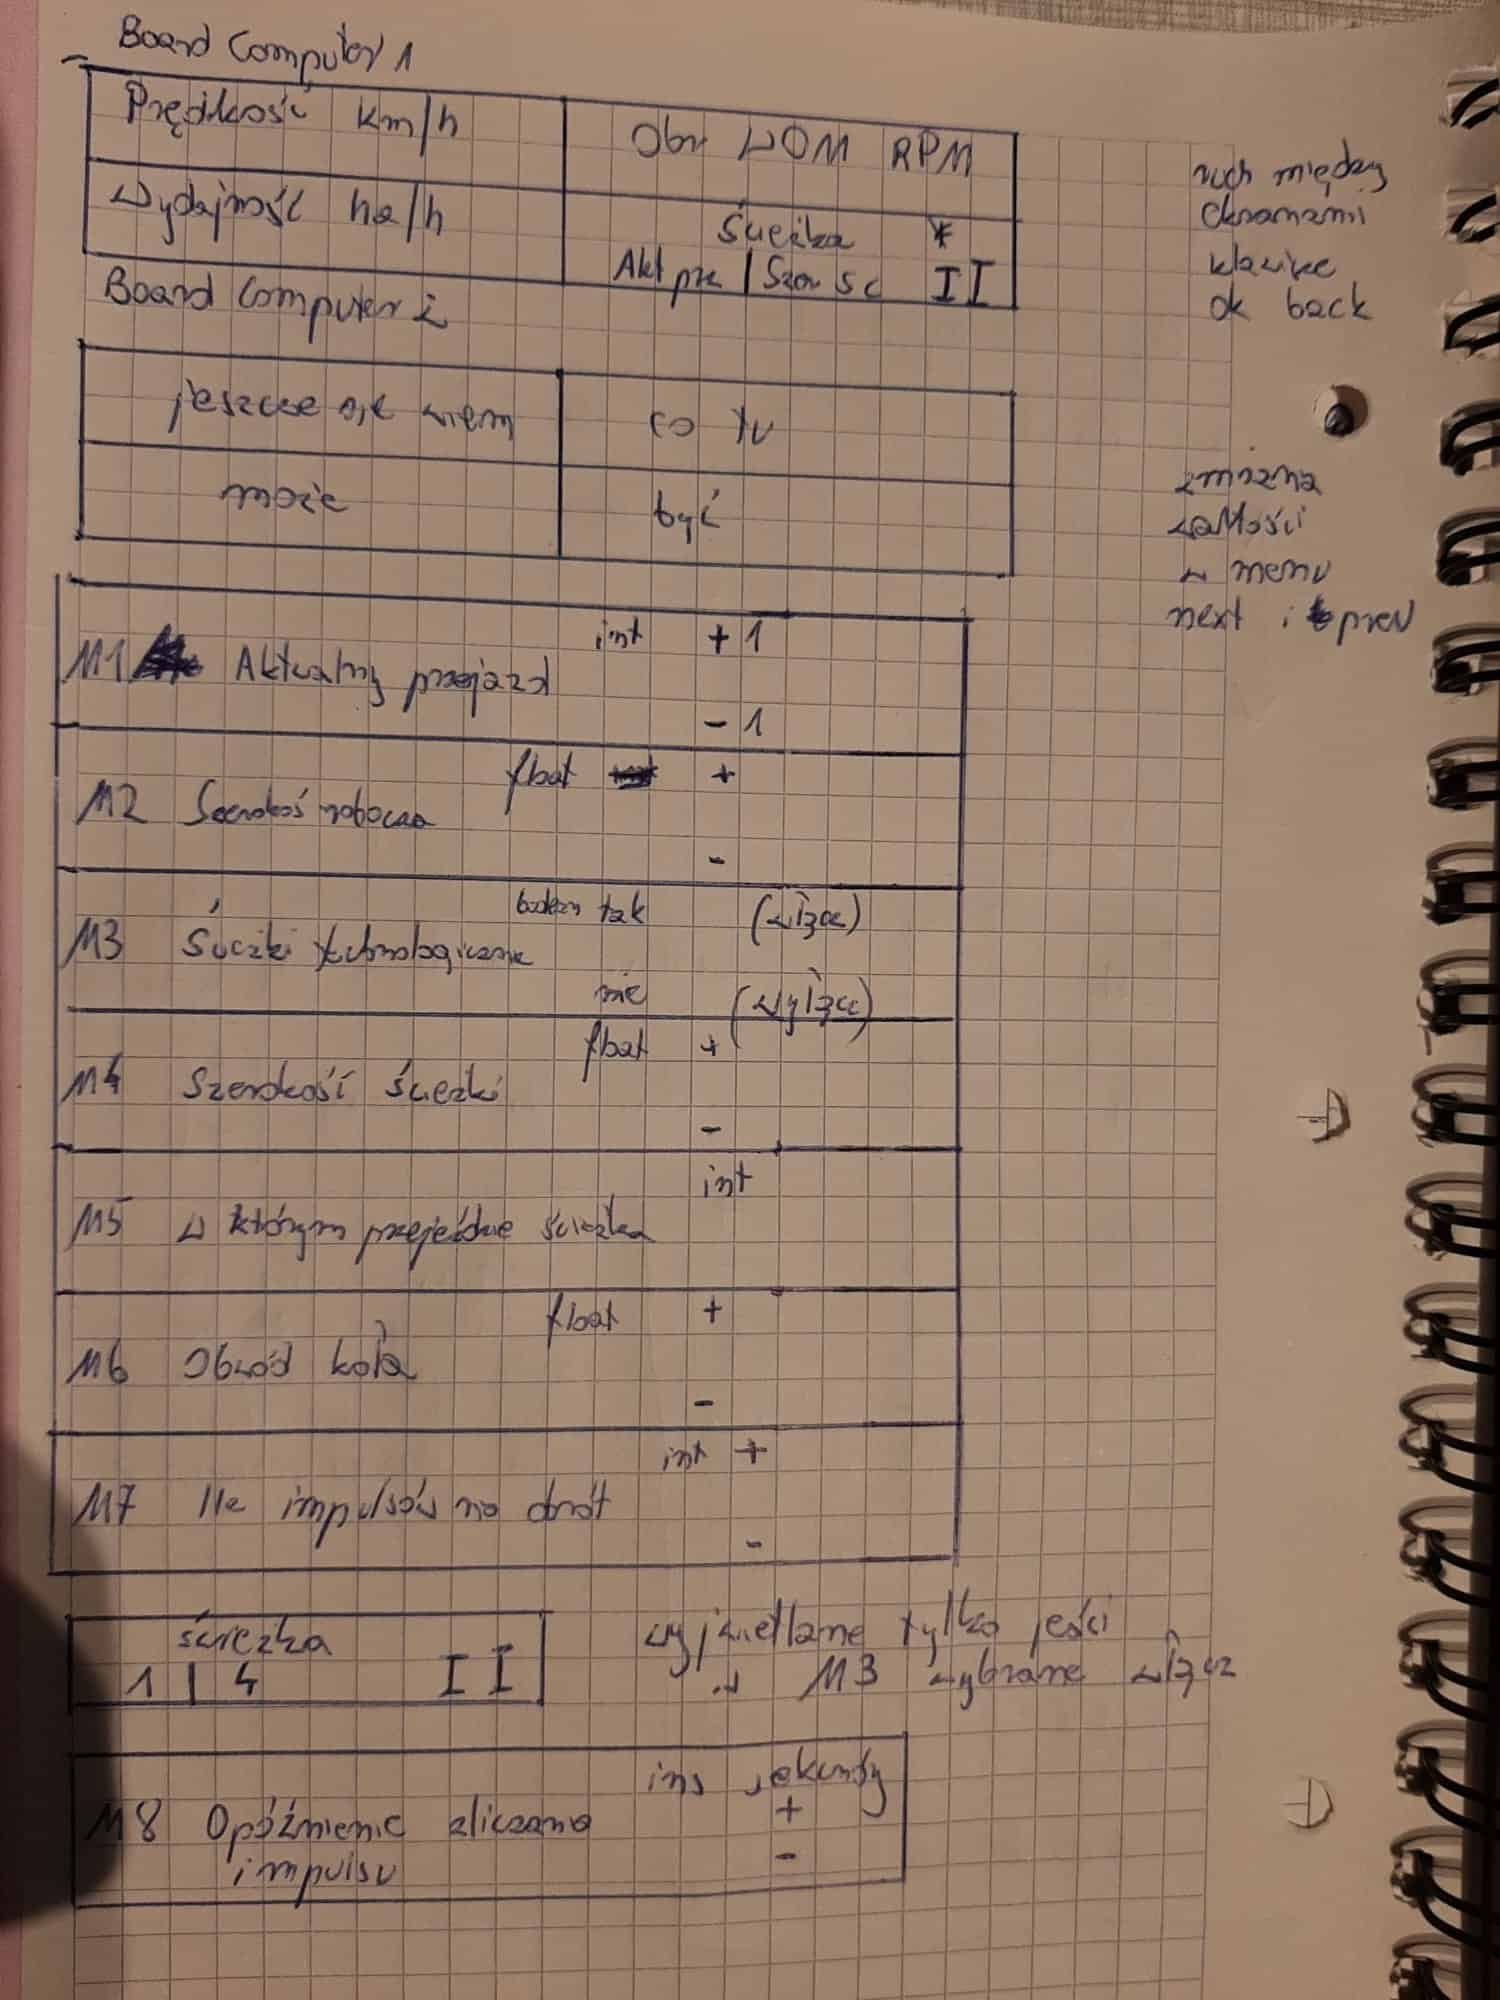 Board Computer 1
Prędkość km/h
Obr WOM RPM
Wydajność ha/h
Ścieżka *
Akt prze | Szer sc II
Board Computer 2
ruch między
ekranami
klawisze
ok back
jeszcze nie wiem
co tu
może
być
zmiana
wartości
w menu
next i prev
M1 Aktualny przejazd int +1
-1
M2 Szerokość robocza float +
-
M3 Ścieżki technologiczne boolean tak (włącz)
nie (wyłącz)
M4 Szerokość ścieżki float +
-
M5 W którym przejeździe ścieżka int
M6 Obwód koła float +
-
M7 Ile impulsów na obrót int +
-
ścieżka
1 | 4 II
wyświetlane tylko jeśli
w M3 wybrane włącz
M8 Opóźnienie zliczania
impulsu
sekundy
+
-